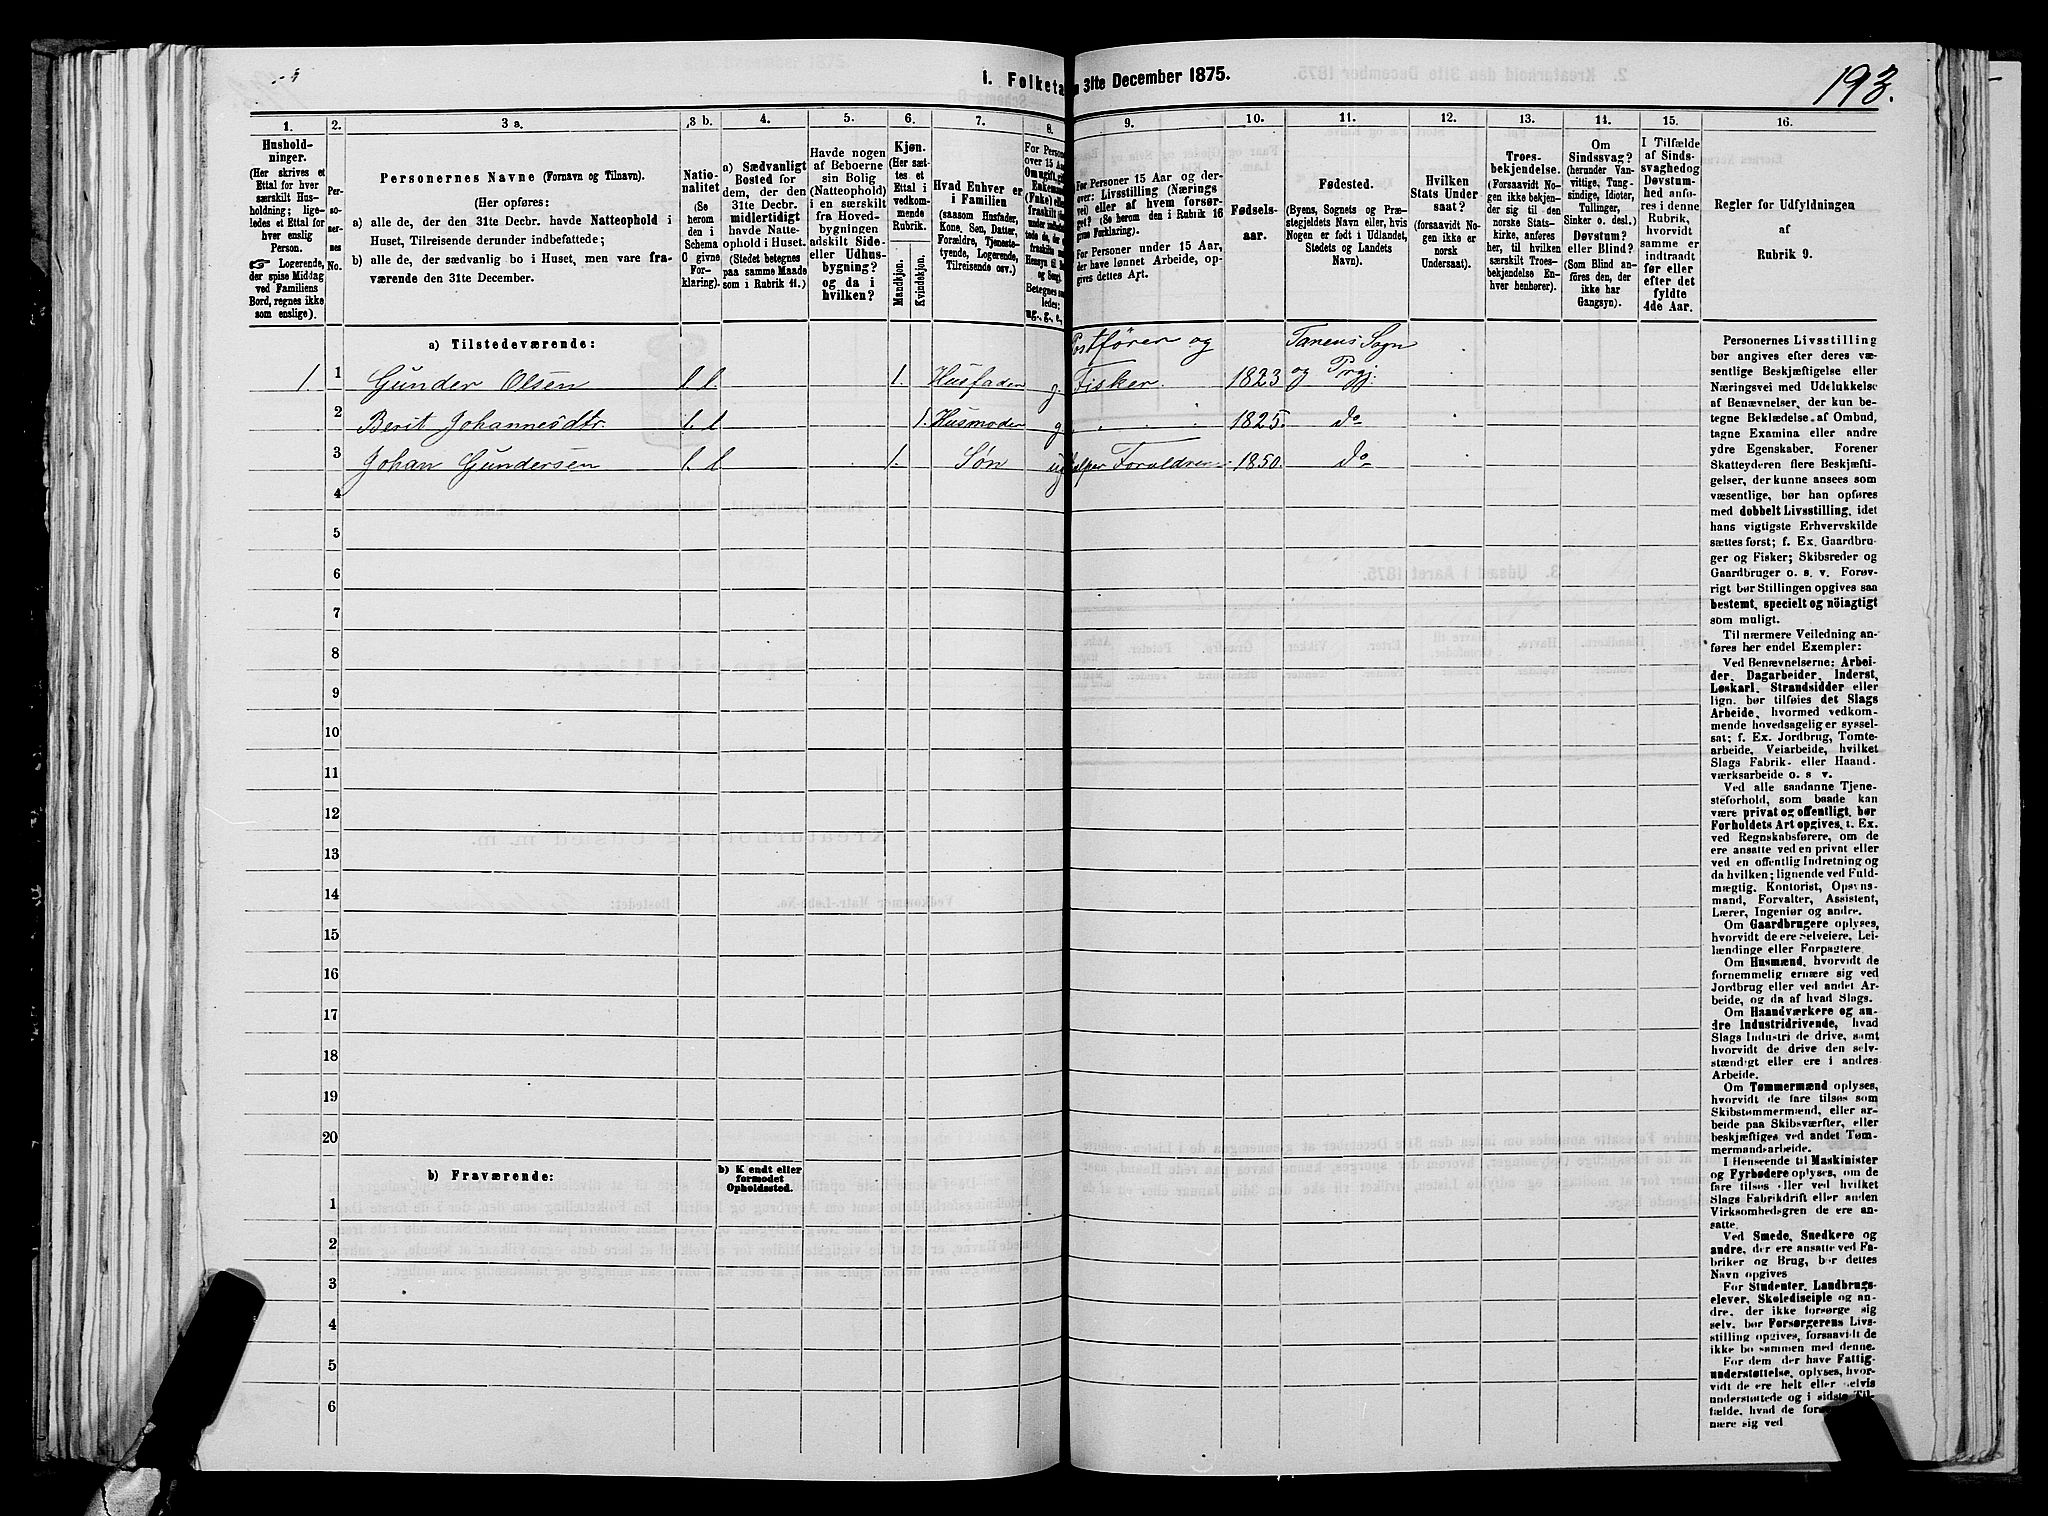 1. Folketæ
n 31te December 1875.
193.
1.
2.
3 a.
3 b.
4.
5.
6.
7.
8.
9.
10.
11.
12.
13.
14.
15.
16.
Hushold-
ninger.
(Her skrives et
Ettal for hver
særskilt Hus-
holdning; lige-
ledes et Ettal for
hver enslig
Person.
☞ Logerende,
der spise Middag
ved Familiens
Bord, regnes ikke
som enslige).
Per-
so-
ner-
nes
No.
Personernes Navne (Fornavn og Tilnavn).
(Her opføres:
a) alle de, der den 31te Decbr. havde Natteophold i
Huset, Tilreisende derunder indbefattede;
b) alle de, der sædvanlig bo i Huset, men vare fra-
værende den 31te December.
Natio-
nalitet
(Se
herom
den i
Schema
C givne
For-
klaring).
a) Sædvanligt
Bosted for
dem, der den
31te Decbr.
midlertidigt
havde Natte-
ophold i Huset.
(Stedet betegnes
paa samme Maade
som i Rubrik 11.)
Havde nogen
af Beboerne
sin Bolig
(Natteophold)
i en særskilt
fra Hoved-
bygningen
adskilt Side-
eller Udhus-
bygning?
og da i
hvilken?
Kjøn.
(Her sæt-
tes et
Ettal i
vedkom-
mende
Rubrik.
Mandkjøn.
Kvindekjøn.
Hvad Enhver er
i Familien
(saasom Husfader,
Kone, Søn, Datter,
Forældre, Tjeneste-
tyende, Logerende,
Tilreisende osv.)
For Person
over 15 Aar
ug., g., e.,
For Personer 15 Aar og der-
over: Livsstilling (Nærings
vei) eller af hvem forsør-
get? (Se herom den i Rubrik 16
givne Forklaring).
For Personer under 15 Aar,
der have lønnet Arbeide, op-
gives dettes Art.
Fødsels-
aar.
Fødested.
(Byens, Sognets og Præ-
stegjeldets Navn eller, hvis
Nogen er født i Udlandet,
Stedets og Landets
Navn).
Hvilken
Stats Under
saat?
(forsaavidt No-
gen ikke er
norsk
Undersaat).
Troes-
bekjendelse.
(Forsaavidt No-
gen ikke bekjen-
der sig til den
norske Stats-
kirke, anføres
her, til hvilken
særskilt Troes-
bekjendelse En-
hver henhører).
Om
Sindssvag?
(herunder Van-
vittige, Tung-
sindige, Idioter,
Tullinger,
Sinker o. desl.)
Døvstum?
eller Blind?
(Som Blind an-
føres den, der
ikke har
Gangsyn).
I Tilfælde
af Sinds-
svaghed og
Døvstum-
hed anfø-
res i denne
Rubrik,
hvorvidt
samme er
indtraadt
før eller
efter det
fyldte
4de Aar.
Regler for Udfyldningen
af
Rubrik 9.
a) Tilstedeværende:
Postfører og
Tanens Sogn
1.
1
Gunder Olsen
l. l
1.
Husfader
g.
Fisker.
1823
og Prgj.
2
Berit Johannesdtr.
l. l
1.
Husmoder
g.
1825.
do
3
Johan Gundersen
l. l
1.
Søn
ug
hjelper Foreldren
1850.
do
4
5
6
7
8
9
10
11
12
13
14
15
16
17
18
19
20
b) Fraværende:
b) Kjendt eller
formodet
Opholdssted.
1
2
3
4
5
6
Personernes Livsstilling
bør angives efter deres væ-
sentlige Beskjæftigelse eller
Næringsvei med Udelukkelse
af Benævnelser, der kun be-
tegne Beklædelse af Ombud,
tagne Examina eller andre
ydre Egenskaber. Forener
Skatteyderen flere Beskjæfti-
gelser, der kunne ansees som
væsentlige, bør han opføres
med dobbelt Livsstilling, idet
hans vigtigste Erhvervskilde
sættes først; f. Ex. Gaardbru-
ger og Fisker; Skibsreder og
Gaardbruger o. s. v. Forøv-
rigt bør Stillingen opgives saa
bestemt, specielt og nöiagtigt
som muligt.
Til nærmere Veiledning an-
føres her endel Exempler:
Ved Benævnelserne: Arbei-
der, Dagarbeider, Inderst,
Løskarl, Strandsidder eller
lign. bør tilføies det Slags
Arbeide, hvormed vedkom-
mende hovedsagelig er syssel-
sat; f. Ex. Jordbrug, Tomte-
arbeide, Veiarbeide, hvilket
Slags Fabrik- eller Haand-
værksarbeide o. s v.
Ved alle saadanne Tjene-
steforhold, som baade kan
være privat og offentligt, bør
Forholdets Art opgives, t. Ex.
ved Regnskabsførere, om de
ere ansatte ved en privat eller
ved en offentlig Indretning og
da hvilken; lignende ved Fuld-
mægtig, Kontorist, Opsyns-
mand, Forvalter, Assistent,
Lærer, Ingeniør og andre.
Om Gaardbrugere oplyses,
hvorvidt de ere selveiere, Lei-
lændinge eller Forpagtere.
Om Husmænd, hvorvidt de
fornemmelig ernære sig ved
Jordbrug eller ved andet Ar-
beide, og da af hvad Slags.
Om Haandværkere og an-
dre Industridrivende, hvad
Slags Industri de drive, samt
hvorvidt de drive den selv-
stændigt eller ere i andres
Arbeide.
Om Tømmermænd oplyses,
hvorvidt de fare tilsøs som
Skibstømmermænd, eller ar-
beide paa Skibsværfter, eller
beskjæftiges ved andet Tøm-
mermandsarbeide.
I Henseende til Maskinister
og Fyrbødere oplyses, om de
fare tilsøs eller ved hvilket
Slags Fabrikdrift eller anden
Virksomhedsgren de ere an-
satte.
Ved Smede, Snedkere og
andre, der ere ansatte ved Fa-
briker og Brug, bør dettes
Navn opgives
For Studenter, Landbrugs-
elever, Skoledisciple og an-
dre, der ikke forsørge sig
selv, bør Forsørgerens Livs-
stilling opgives, forsaavidt de
ikke bo sammen med denne.
For dem, der have Fattig-
understøttelse, oplyses, hvor-
vidt de ere helt eller delvis
understøttede og i sidste Til-
fælde, hvad de
nære sig ved